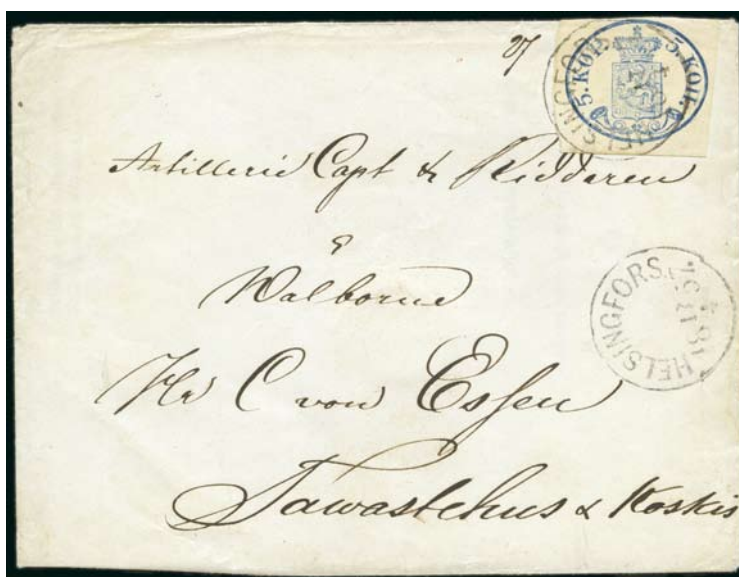 27
5. KOP. 5. КОП.
HELSINGFORS
Artillerie Capt & Ridderen
Walborne
Hr C von Essen
HELSINGFORS.
Tawastehus & Koskis